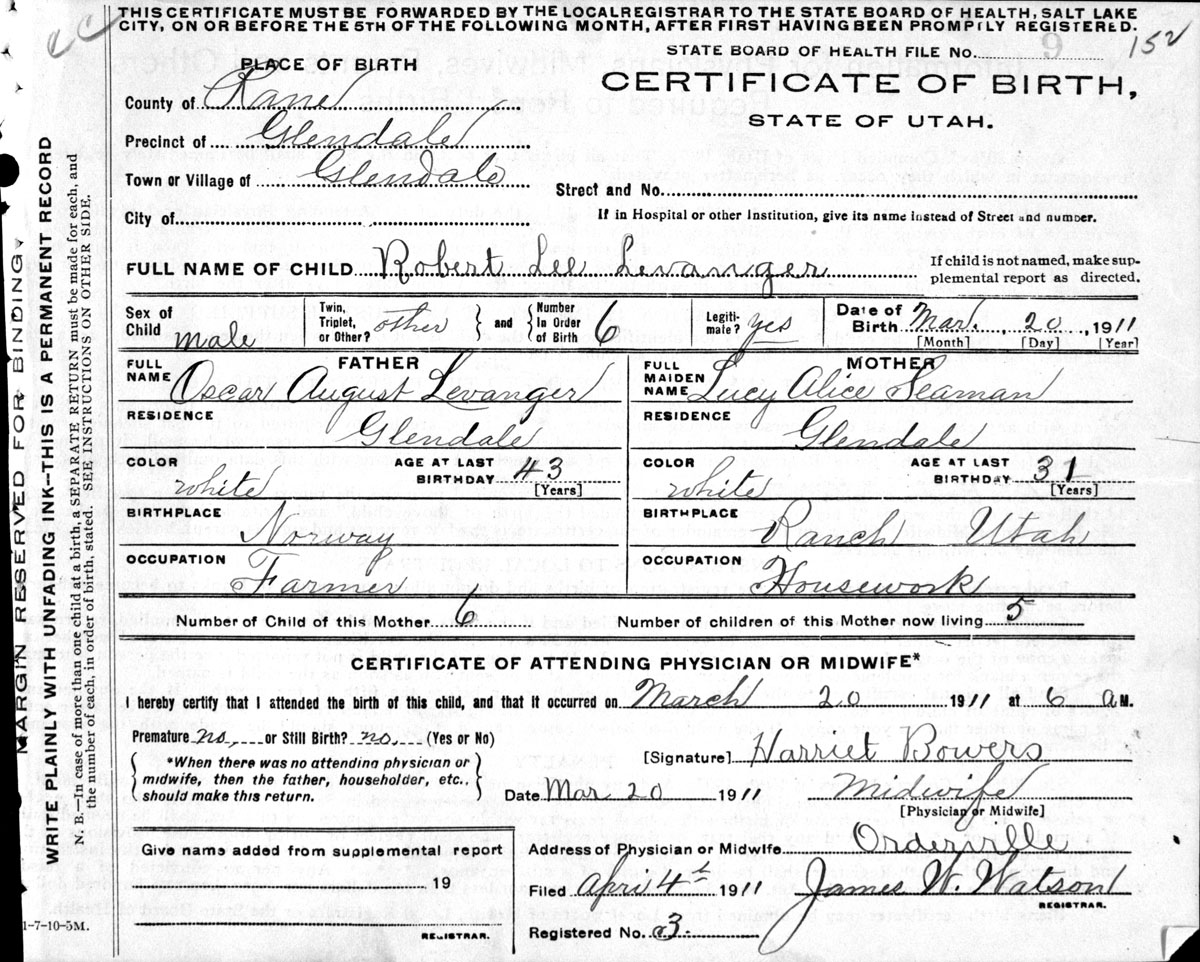 THIS CERTIFICATE MUST BE FORWARDED BY THE LOCAL REGISTRAR TO THE STATE BOARD OF HEALTH, SALT LAKE
CITY, ON OR BEFORE THE 5TH OF THE FOLLOWING MONTH, AFTER FIRST HAVING BEEN PROMPTLY REGISTERED.
152
STATE BOARD OF HEALTH FILE No.
PLACE OF BIRTH
CERTIFICATE OF BIRTH,
STATE OF UTAH.
County of Kane
Precinct of Glendale
Town or Village of Glendale
Street and No.
City of
If in Hospital or other Institution, give its name instead of Street and number.
FULL NAME OF CHILD Robert Lee Levanger
If child is not named, make sup-
plemental report as directed.
Sex of Child male Twin, Triplet, or Other? other and Number In Order of Birth 6 Legiti- mate? yes Date of Birth Mar. 20, 1911
[Month] [Day] [Year]
FATHER
FULL NAME Oscar August Levanger
RESIDENCE Glendale
COLOR white AGE AT LAST BIRTHDAY 43 [Years]
BIRTHPLACE Norway
OCCUPATION Farmer
MOTHER
FULL MAIDEN NAME Lucy Alice Seaman
RESIDENCE Glendale
COLOR white AGE AT LAST BIRTHDAY 31 [Years]
BIRTHPLACE Ranch Utah
OCCUPATION Housework
Number of Child of this Mother 6 Number of children of this Mother now living 5
CERTIFICATE OF ATTENDING PHYSICIAN OR MIDWIFE*
I hereby certify that I attended the birth of this child, and that it occurred on March 20 1911 at 6 a M.
Premature no, or Still Birth? no, (Yes or No)
*When there was no attending physician or
midwife, then the father, householder, etc.,
should make this return.
[Signature] Harriet Bowers
Date Mar 20 1911 Midwife
[Physician or Midwife]
Address of Physician or Midwife Orderville
Filed April 4th 1911 James W. Watson
REGISTRAR.
Registered No. 3.
Give name added from supplemental report
19
REGISTRAR.
1-7-10-5M.
MARGIN RESERVED FOR BINDING.
WRITE PLAINLY WITH UNFADING INK--THIS IS A PERMANENT RECORD
N. B.--In case of more than one child at a birth, a SEPARATE RETURN must be made for each, and
the number of each, in order of birth, stated. SEE INSTRUCTIONS ON OTHER SIDE.